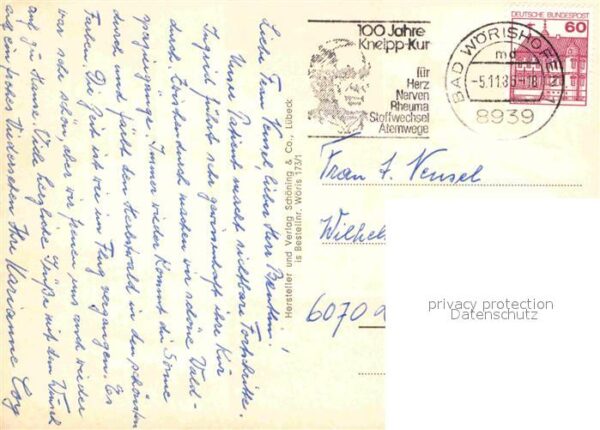 Liebe Frau Vensel, lieber Herr Benken!
Unser Patient macht sichtbare Fortschritte.
Ingrid führt sehr gewissenhaft ihre Kur
durch. Zwischendurch machen wir schöne Wald-
spaziergänge. Immer wieder kommt die Sonne
durch und färbt den Herbstwald in den schönsten
Farben. Die Zeit ist wie im Flug vergangen. Es
war sehr schön, aber wir freuen uns auch wieder
auf zu Hause. Viele herzliche Grüße mit dem Wunsch
auf ein frohes Wiedersehen Ihre Marianne
Hersteller und Verlag Schöning & Co., Lübeck
is Bestellnr. Wöris 173/1
100 Jahre
Kneipp-Kur
für
Herz
Nerven
Rheuma
Stoffwechsel
Atemwege
BAD WÖRISHOFEN 1
md
-5.11.8
-18
8939
DEUTSCHE BUNDESPOST
60
Frau f. Vensel
Wilhel
6070
privacy protection
Datenschutz